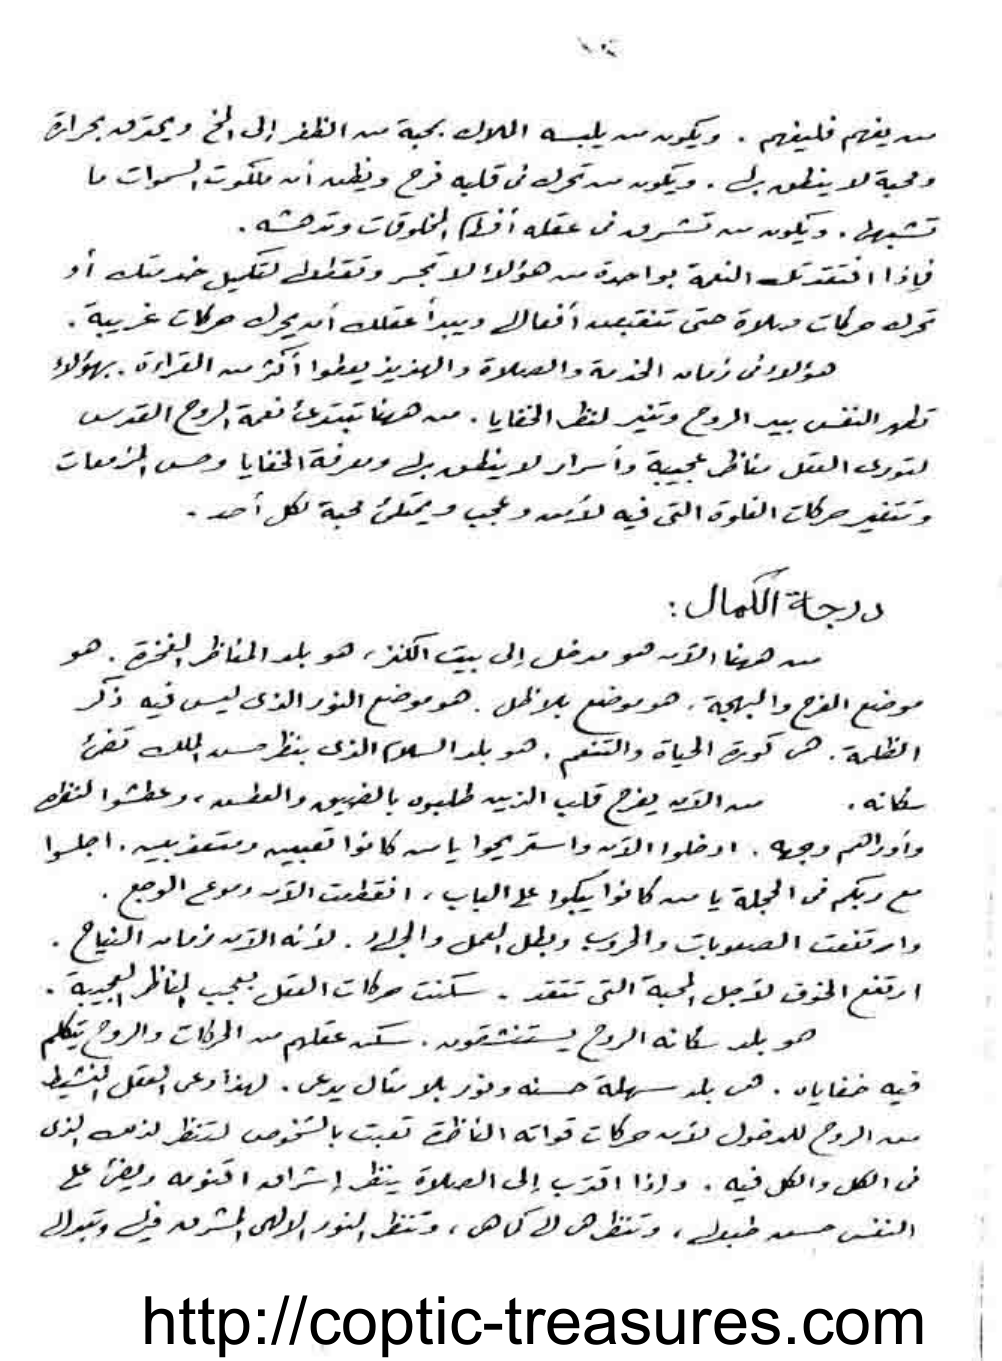 من يفهم فليفهم . ويكون من يلبسه الملاك بمحبة من الظفر إلى المخ ويحترق بحرارة
ومحبة لا ينطق بها . ويكون من تحرك في قلبه فرح ويظن أن ملكوت السموات ما
تشبهها . ويكون من تشرق في عقله أفهام المخلوقات وتدهشه .
فإذا افتقدتك النعمة بواحدة من هؤلاء لا تجسر وتقطعها لتكميل خدمتك أو
تحرك حركات صلاة حتى تنقبض أفعالها ويبدأ عقلك أن يحرك حركات غريبة .
هؤلاء في زمان الخدمة والصلاة والهذيذ يعطوا أكثر من القراءة . بهؤلاء
تطهر النفس بيد الروح وتنير لنظر الخفايا . من ههنا تبتدئ نعمة الروح القدس
لتورى العقل مناظر عجيبة وأسرار لا ينطق بها ومعرفة الخفايا وحس المزمعات
وتتغير حركات القلوة التي فيه لأمن وعجب ويمتلئ محبة لكل أحد .
درجة الكمال :
من ههنا الآن هو مدخل إلى بيت الكنز ، هو بلد المناظر الفخرة . هو
موضع الفرح والبهجة . هو موضع بلا ظل . هو موضع النور الذي ليس فيه ذكر
الظلمة . هي كورة الحياة والتنعم . هو بلد السلام الذي بنظر حسن الملك تضئ
سكانه . من الآن يفرح قلب الذين طلبوه بالضيق والعطش ، وعطشوا لنظره
وأوراهم وجهه . ادخلوا الآن واستريحوا يا من كانوا تعبين ومتعذبين . اجلسوا
مع ربكم في الحجلة يا من كانوا يبكوا على الباب ، انقطعت الآن دموع الوجع .
وارتفعت الصعوبات والحروب وبطل العمل والجهاد . لأنه الآن زمان النياح .
ارتفع الخوف لأجل المحبة التي تتقد . سكنت حركات العقل بعجب المناظر العجيبة .
هو بلد سكانه الروح يستنشقون . سكن عقلهم من الحركات والروح يتكلم
فيه خفاياه . هي بلد سهلة حسنه ونور بلا مثال يدعى . لهذا دعى العقل النشيط
من الروح للدخول لأن حركات قواته الناظرة تعبت بالشخوص لتنظر لذلك الذي
في الكل والكل فيه . وإذا اقترب إلى الصلاة ينظر إشراق اقنومه ويضئ على
النفس حسن طبعها ، وتنظر هي لها كما هي ، وتنظر النور الإلهي المشرق فيها وتبدلها
http://coptic-treasures.com